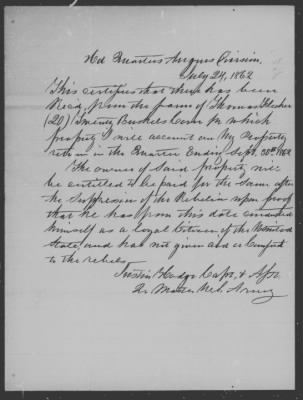 Hd Quarters Angurs Division.
July 24, 1862
This certifies that there has been
Recd. from the farm of Thomas
(20) Twenty Bushels Corn for which
property I will account on My Property
return in the Quarter Ending Sept. 30th 1862
The owner of Said property will
be entitled to be paid for the Same after
the Suppression of the Rebelion upon proof
that he has from this date conducted
himself as a loyal Citizen of the United
States, and has not given aid or Comfort
to the rebels
Hodge Capt. &
Qr Master U.S. Army